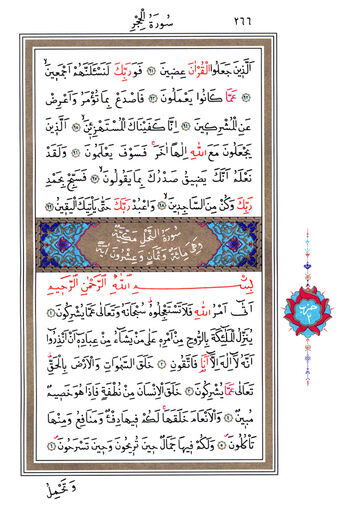 ٢٦٦ سُورَةُ الْحِجْرِ
الَّذِينَ جَعَلُوا الْقُرْآنَ عِضِينَ ٩١ فَوَرَبِّكَ لَنَسْئَلَنَّهُمْ أَجْمَعِينَ
٩٢ عَمَّا كَانُوا يَعْمَلُونَ ٩٣ فَاصْدَعْ بِمَا تُؤْمَرُ وَأَعْرِضْ
عَنِ الْمُشْرِكِينَ ٩٤ إِنَّا كَفَيْنَاكَ الْمُسْتَهْزِئِينَ ٩٥ الَّذِينَ
يَجْعَلُونَ مَعَ اللّٰهِ إِلٰهًا آخَرَ فَسَوْفَ يَعْلَمُونَ ٩٦ وَلَقَدْ
نَعْلَمُ أَنَّكَ يَضِيقُ صَدْرُكَ بِمَا يَقُولُونَ ٩٧ فَسَبِّحْ بِحَمْدِ
رَبِّكَ وَكُنْ مِنَ السَّاجِدِينَ ٩٨ وَاعْبُدْ رَبَّكَ حَتّٰى يَأْتِيَكَ الْيَقِينُ ٩٩
سُورَةُ النَّحْلِ مَكِّيَّةٌ
وَهِيَ مِائَةٌ وَثَمَانٍ وَعِشْرُونَ آيَةً
بِسْمِ اللّٰهِ الرَّحْمٰنِ الرَّحِيمِ
أَتٰى أَمْرُ اللّٰهِ فَلَا تَسْتَعْجِلُوهُ سُبْحَانَهُ وَتَعَالٰى عَمَّا يُشْرِكُونَ ١
يُنَزِّلُ الْمَلٰئِكَةَ بِالرُّوحِ مِنْ أَمْرِهِ عَلٰى مَنْ يَشَاءُ مِنْ عِبَادِهِ أَنْ أَنْذِرُوا
أَنَّهُ لَا إِلٰهَ إِلَّا أَنَا فَاتَّقُونِ ٢ خَلَقَ السَّمٰوَاتِ وَالْأَرْضَ بِالْحَقِّ
تَعَالٰى عَمَّا يُشْرِكُونَ ٣ خَلَقَ الْإِنْسَانَ مِنْ نُطْفَةٍ فَإِذَا هُوَ خَصِيمٌ
مُبِينٌ ٤ وَالْأَنْعَامَ خَلَقَهَا لَكُمْ فِيهَا دِفْءٌ وَمَنَافِعُ وَمِنْهَا
تَأْكُلُونَ ٥ وَلَكُمْ فِيهَا جَمَالٌ حِينَ تُرِيحُونَ وَحِينَ تَسْرَحُونَ ٦
وَتَحْمِلُ